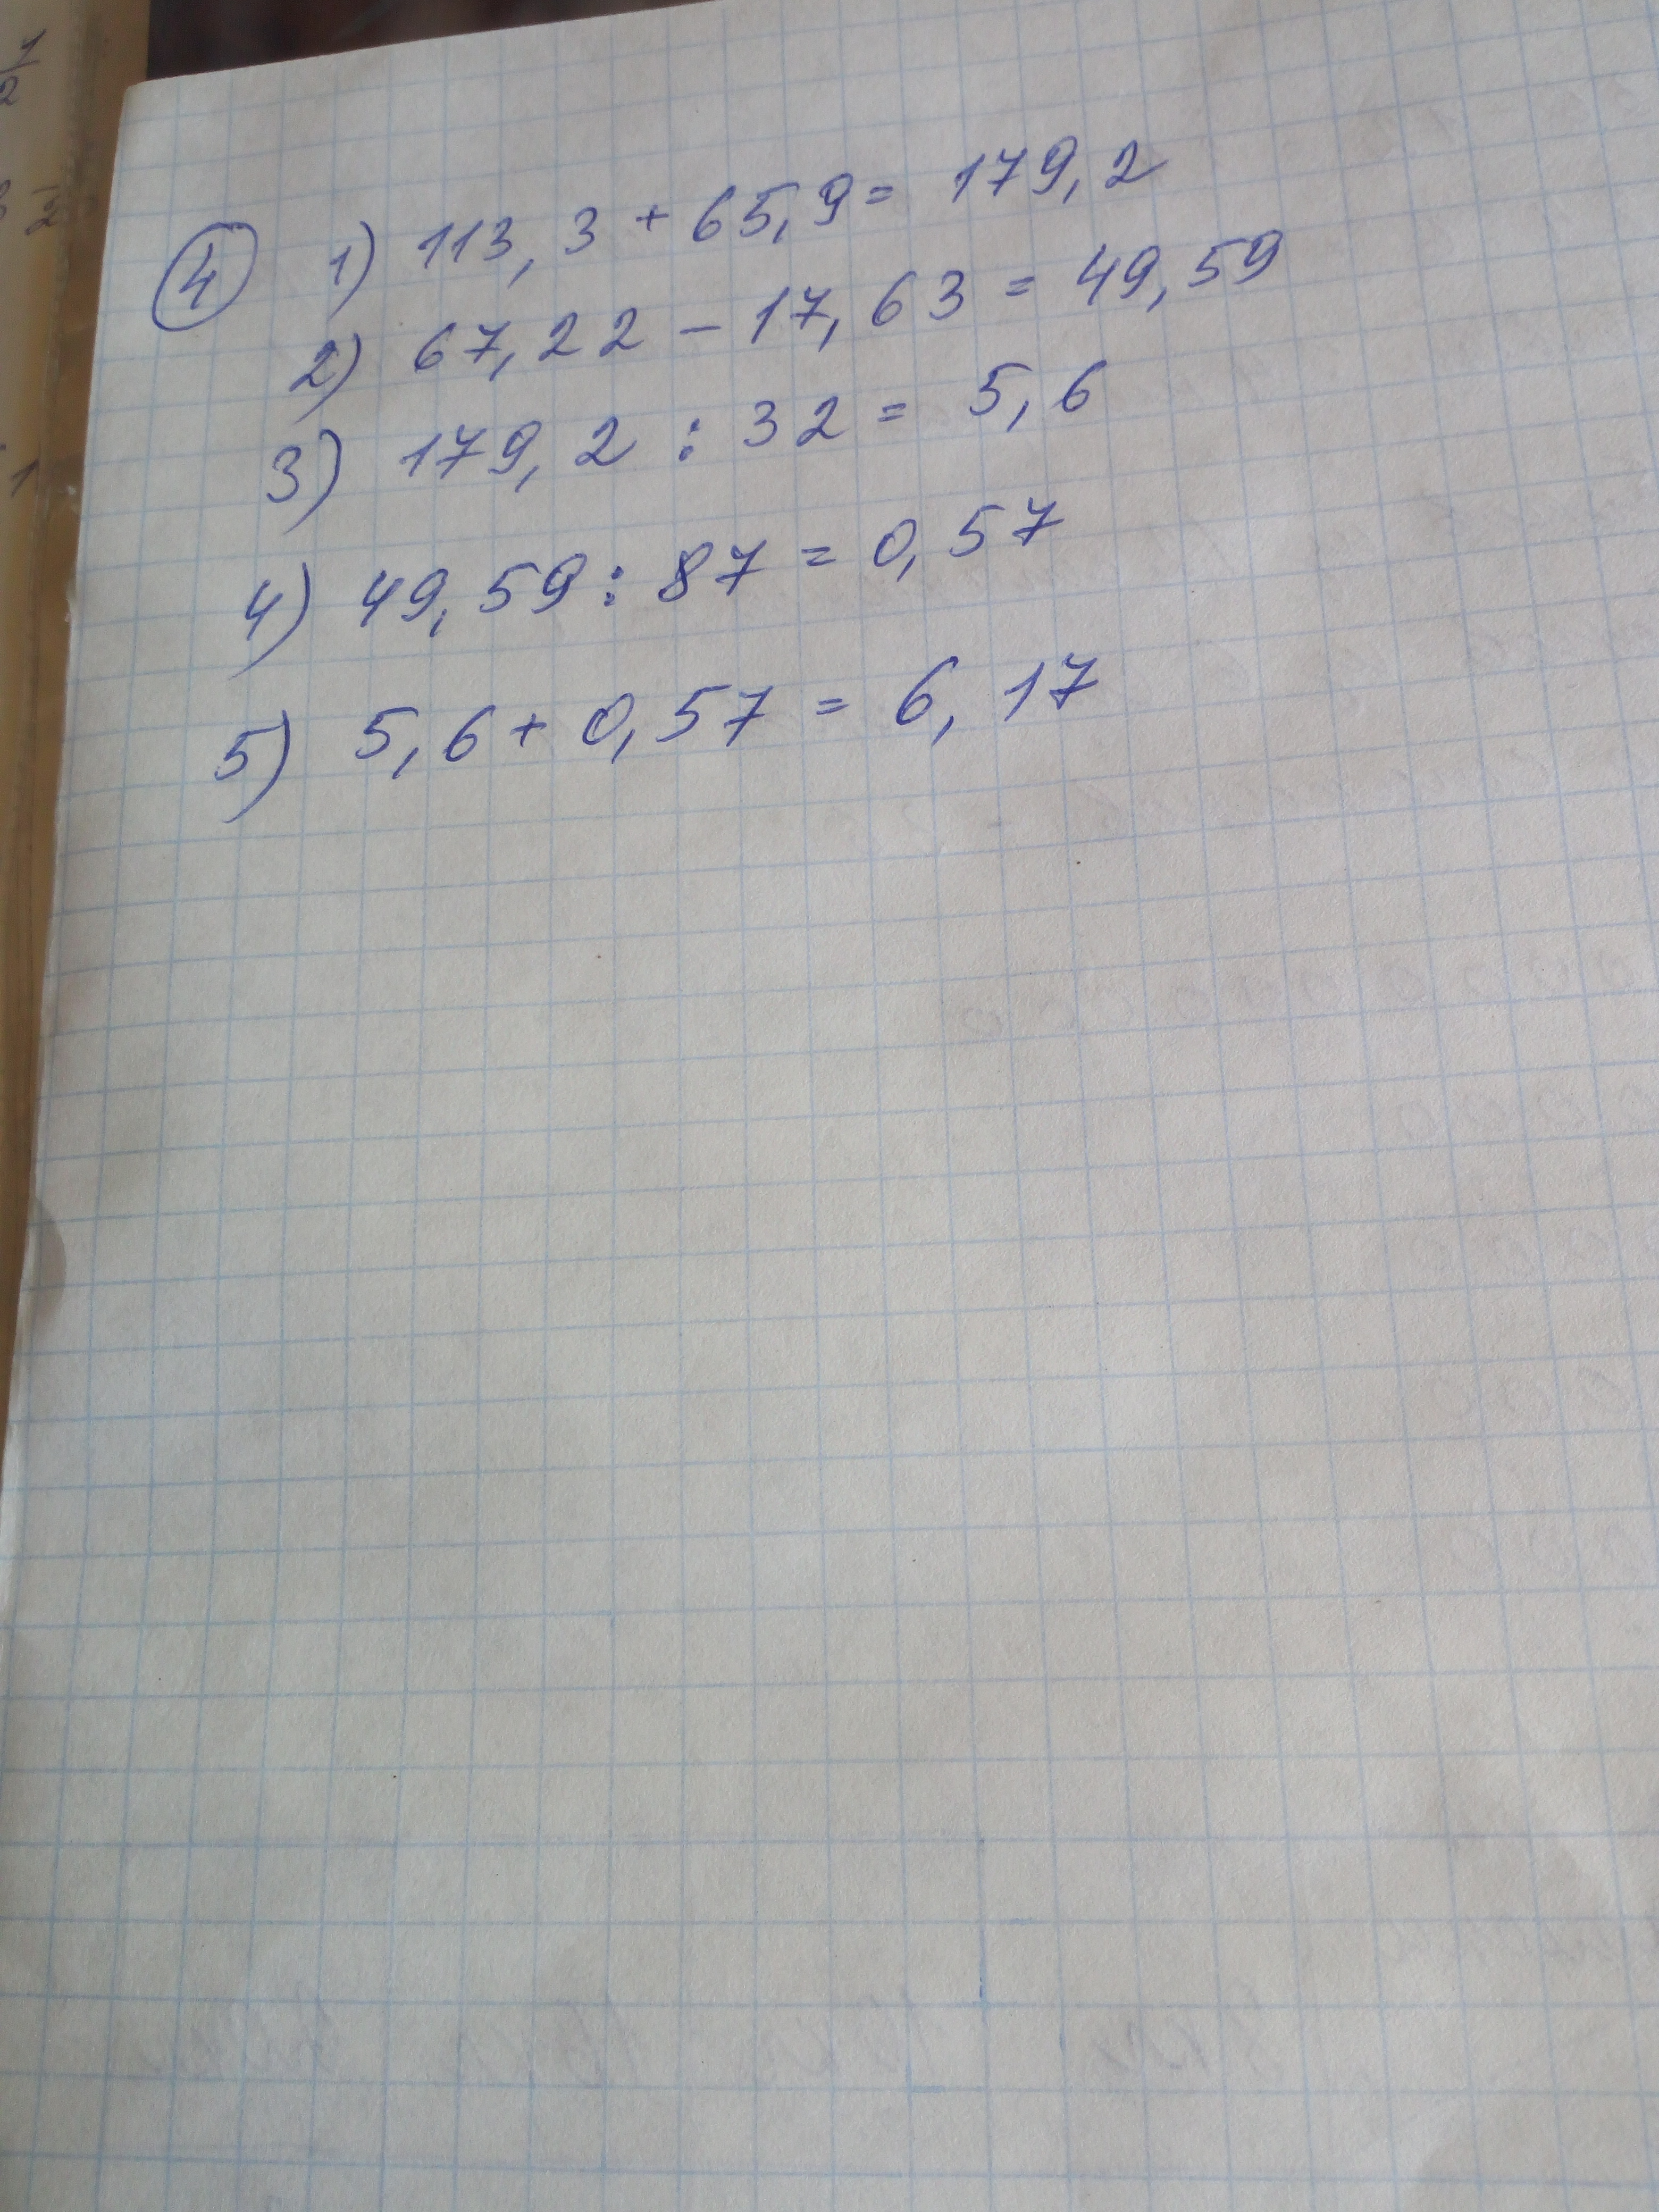 ④ 1) 113,3 + 65,9 = 179,2
2) 67,22 - 17,63 = 49,59
3) 179,2 : 32 = 5,6
4) 49,59 : 87 = 0,57
5) 5,6 + 0,57 = 6,17